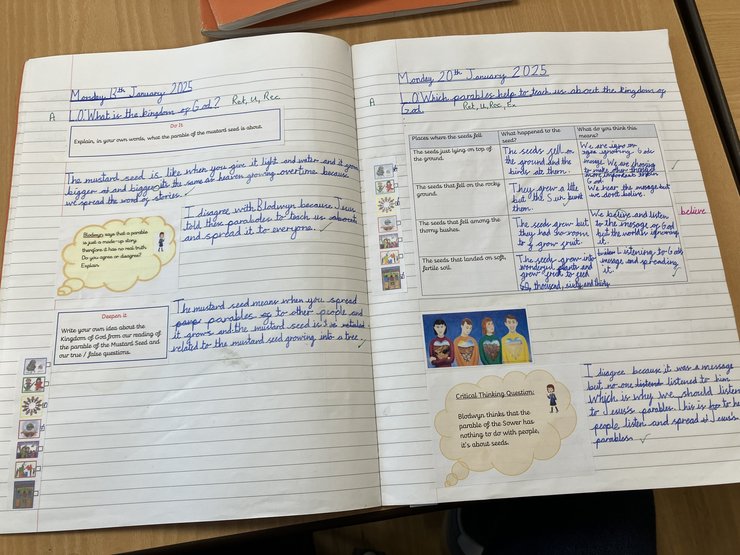 Monday 13th January 2025
A L.O. What is the kingdom of God? Ret, U, Rec
Do It
Explain, in your own words, what the parable of the mustard seed is about.
The mustard seed is like when you give it light and water and it grows
bigger and bigger its the same as heaven growing overtime because
we spread the word of stories.
Blodwyn says that a parable
is just a made-up story,
therefore it has no real truth.
Do you agree or disagree?
Explain.
I disagree with Blodwyn because Jesus
told this parables to teach us about
and spread it to everyone.
Deepen it
Write your own idea about the
Kingdom of God from our reading of
the parable of the Mustard Seed and
our true / false questions.
The mustard seed means when you spread
parables to other people and
it grows and the mustard seed is
related to the mustard seed growing into a tree
Monday 20th January 2025
A L.O. Which parables help to teach us about the kingdom of
God. Ret, U, Rec, Ex
Places where the seeds fell.
What happened to the
seeds?
What do you think this
means?
The seeds just lying on top of
the ground.
The seeds fell on
the ground and the
birds ate them.
We are ignoring Gods
mesage. We are choosing
to make other things
more important than
God
The seeds that fell on the rocky
ground.
They grew a little
but the Sun burnt
them.
We hear the mesage but
we don't belive.
The seeds that fell among the
thorny bushes.
The seeds grew but
they had no room
to grow fruit.
We belive and listen
to the mesage of God
but the world is ignoring
it.
believe
The seeds that landed on soft,
fertile soil.
The seeds grew into
wonderful plants and
grew fruit to feed
60, thousand, sixty and thirty.
Listening to Gods
mesage and spreading
it.
Critical Thinking Question:
Blodwyn thinks that the
parable of the Sower has
nothing to do with people,
it's about seeds.
I disagree because it was a message
but no one listened to him
which is why we should listen
to Jesus's parables. This is to
people listen and spread Jesus's
parables.